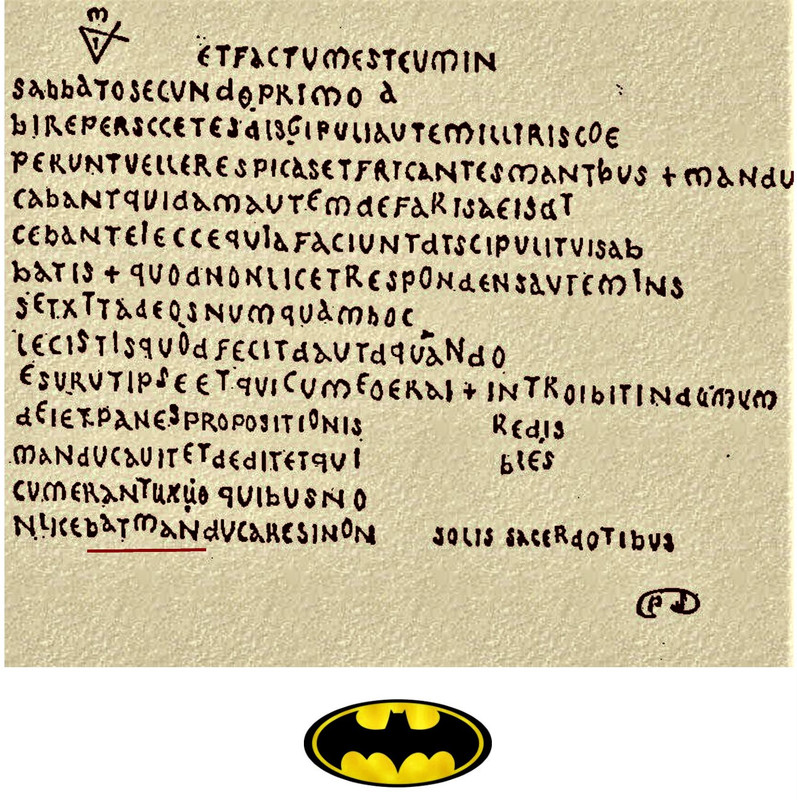 ETFACTUMESTEUMIN
SAbbATOSECUNdOPRIMO A
bIREPERSCCETESdISGIPULIAUTEMILLIRISCOE
PERUNTVELLERESPICASETFRICANTESMANTbUS + MANdU
CAbANTQUIdAMAUTEMdEFARISAEISdT
CEbANTEIECCEQUIAFACIUNTdTSCIPULITVISAb
bATIS + QUOdNONLICETRESPONdENSAUTEMINS
SETXTTAdEOSNUMQUAMbOC
LECISTISQUOdFECITdAUTdQUANdO
ESURUTIPSEETQUICUMEOERAI + INTROIbITINdUMUM
dEIETPANESPROPOSITIONIS REdIS
MANdUCAUITETdEdITETQUI bLES
CUMERANTUXUO QUIbUSNO
NLICEbATMANdUCARESINON SOLIS SACERdOTIbUS
PS